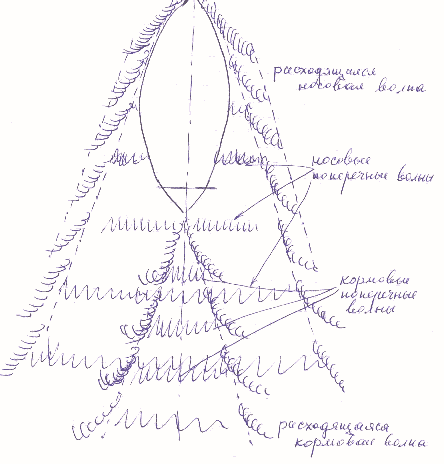 расходящаяся
носовая волна
носовые
поперечные волны
кормовые
поперечные
волны
расходящаяся
кормовая волна